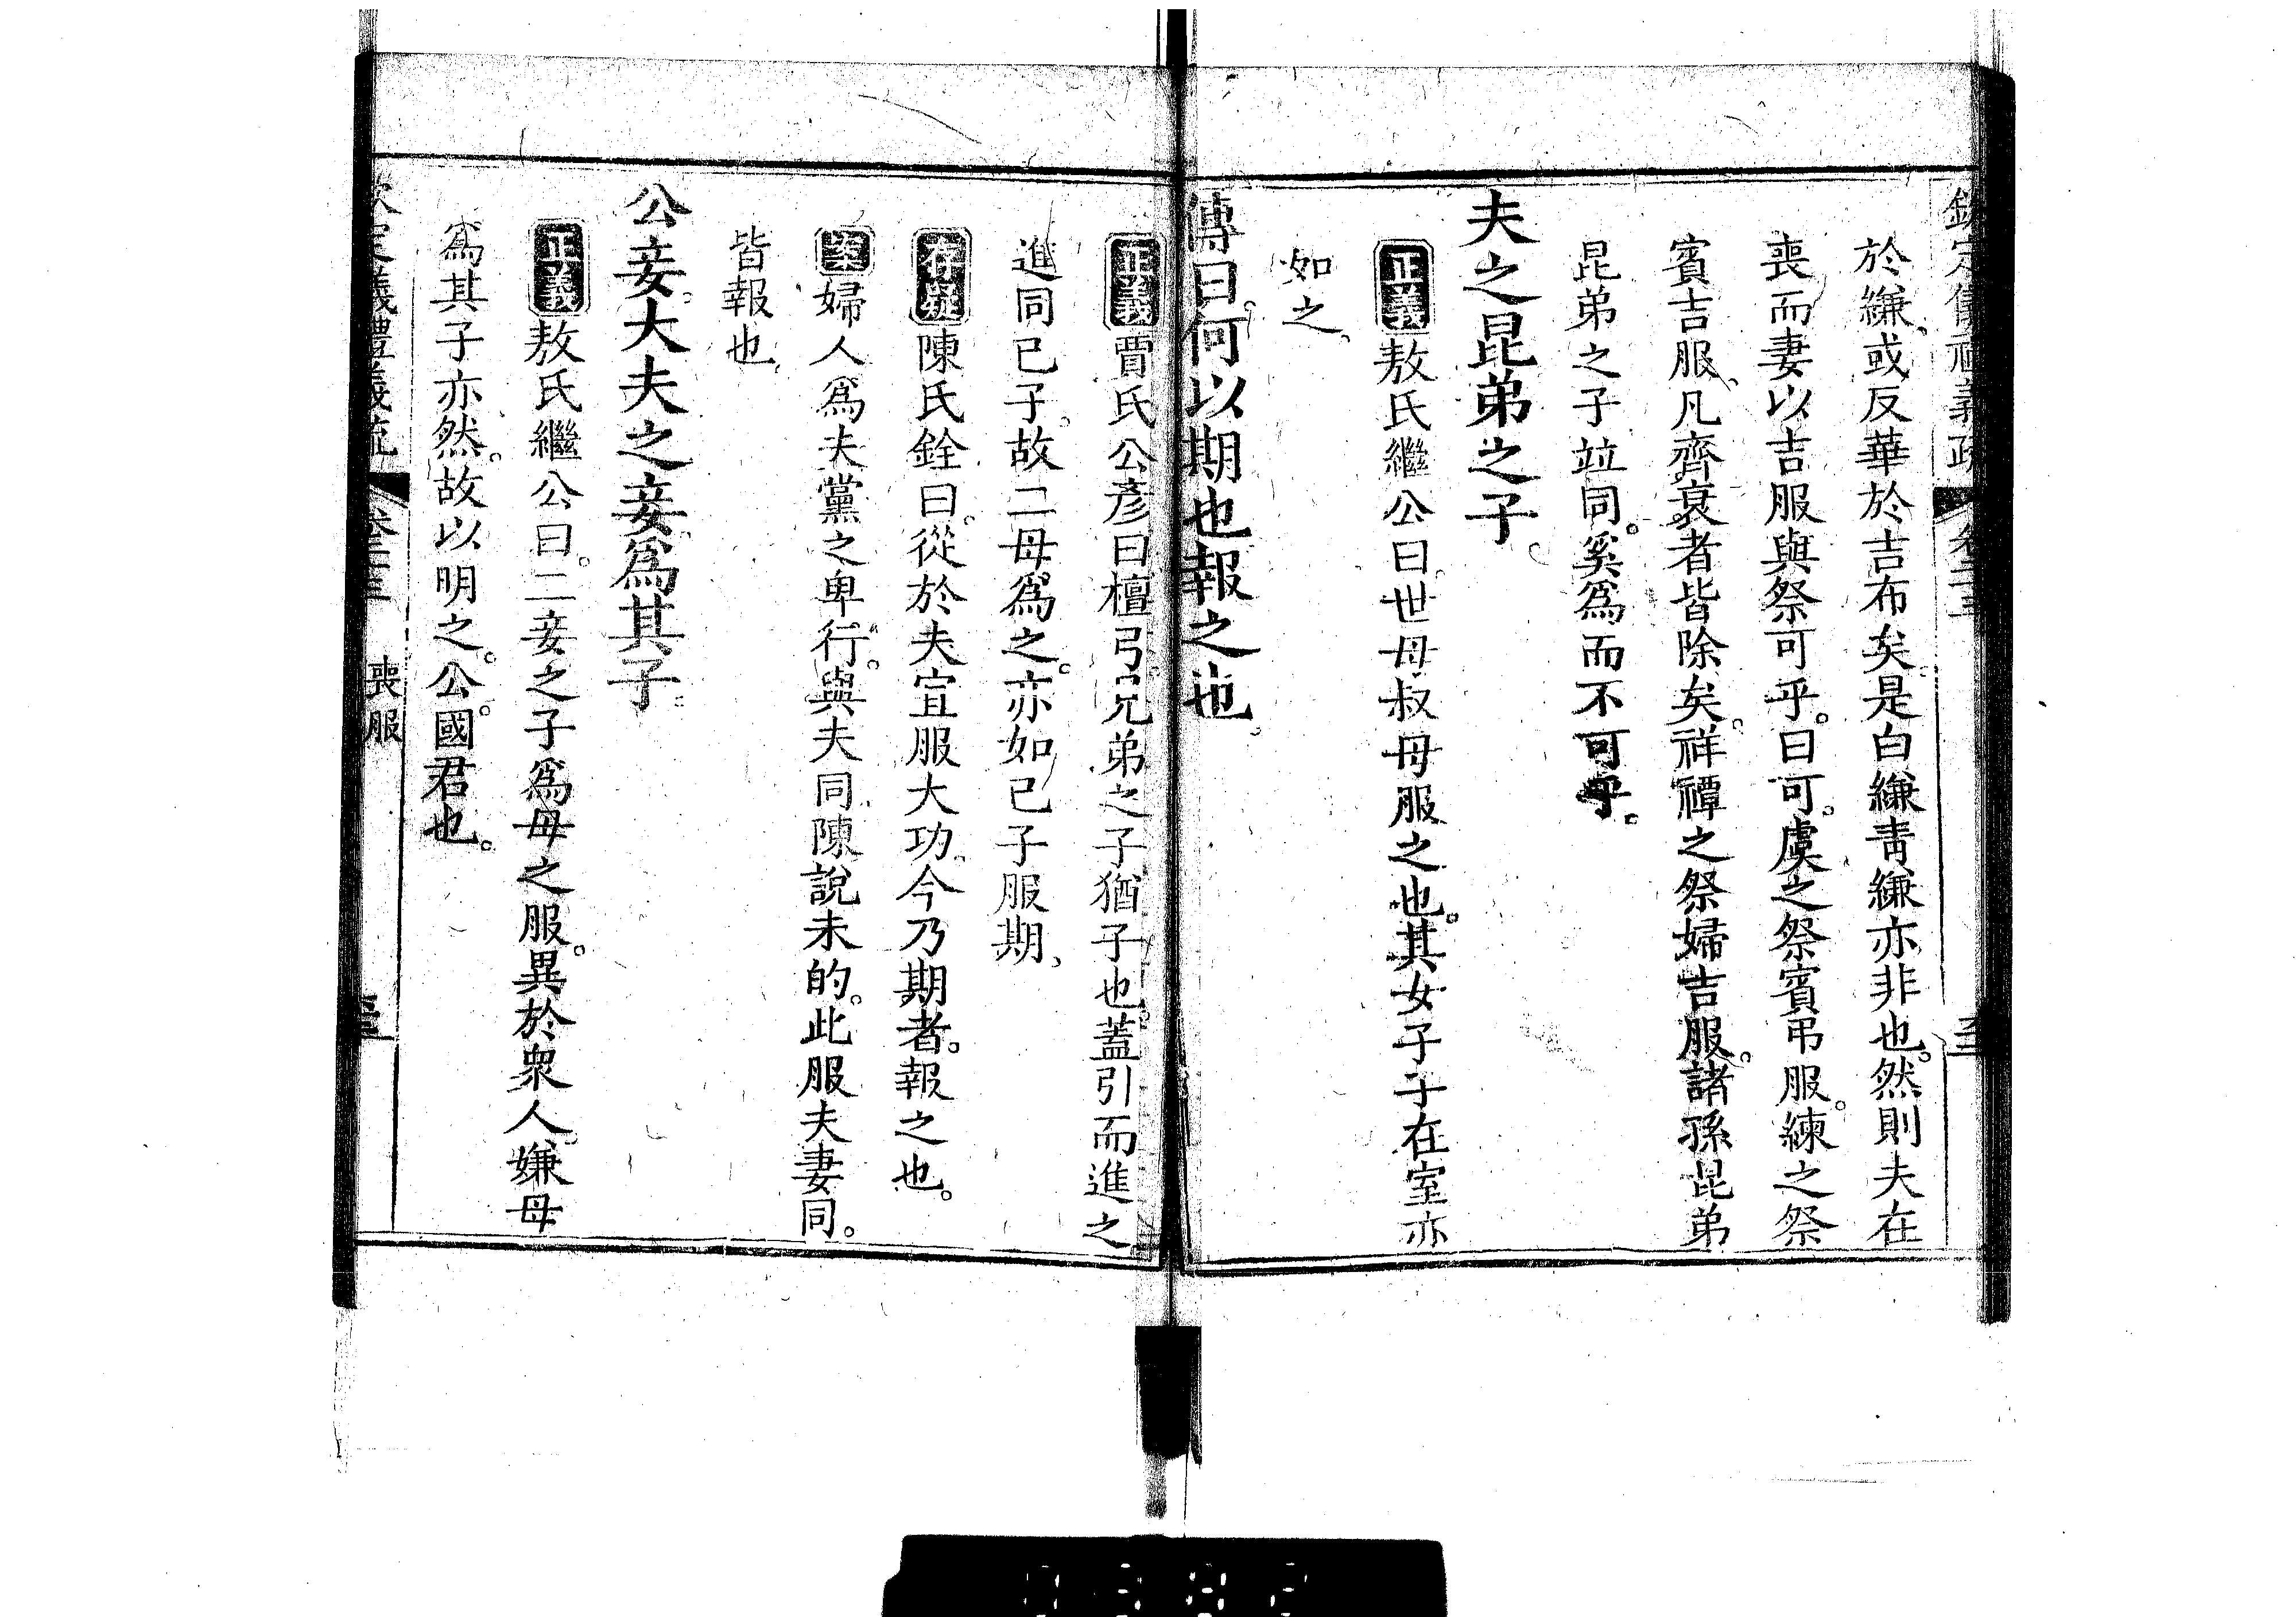 欽定儀禮義疏 卷二十三
於縑或反華於吉布矣是白縑靑縑亦非也然則夫在
喪而妻以吉服與祭可乎曰可虞之祭賓弔服練之祭
賓吉服凡齊衰者皆除矣祥禫之祭婦吉服諸孫昆弟
昆弟之子竝同奚爲而不可乎
夫之昆弟之子
正義敖氏繼公曰世母叔母服之也其女子子在室亦
如之
傳曰何以期也報之也
正義賈氏公彥曰檀弓兄弟之子猶子也蓋引而進之
進同已子故二母爲之亦如己子服期
存疑陳氏銓曰從於夫宜服大功今乃期者報之也
案婦人爲夫黨之卑行與夫同陳說未的此服夫妻同
皆報也
公妾大夫之妾爲其子
正義敖氏繼公曰二妾之子爲母之服異於衆人嫌母
爲其子亦然故以明之公國君也
欽定儀禮義疏 卷二十三 喪服